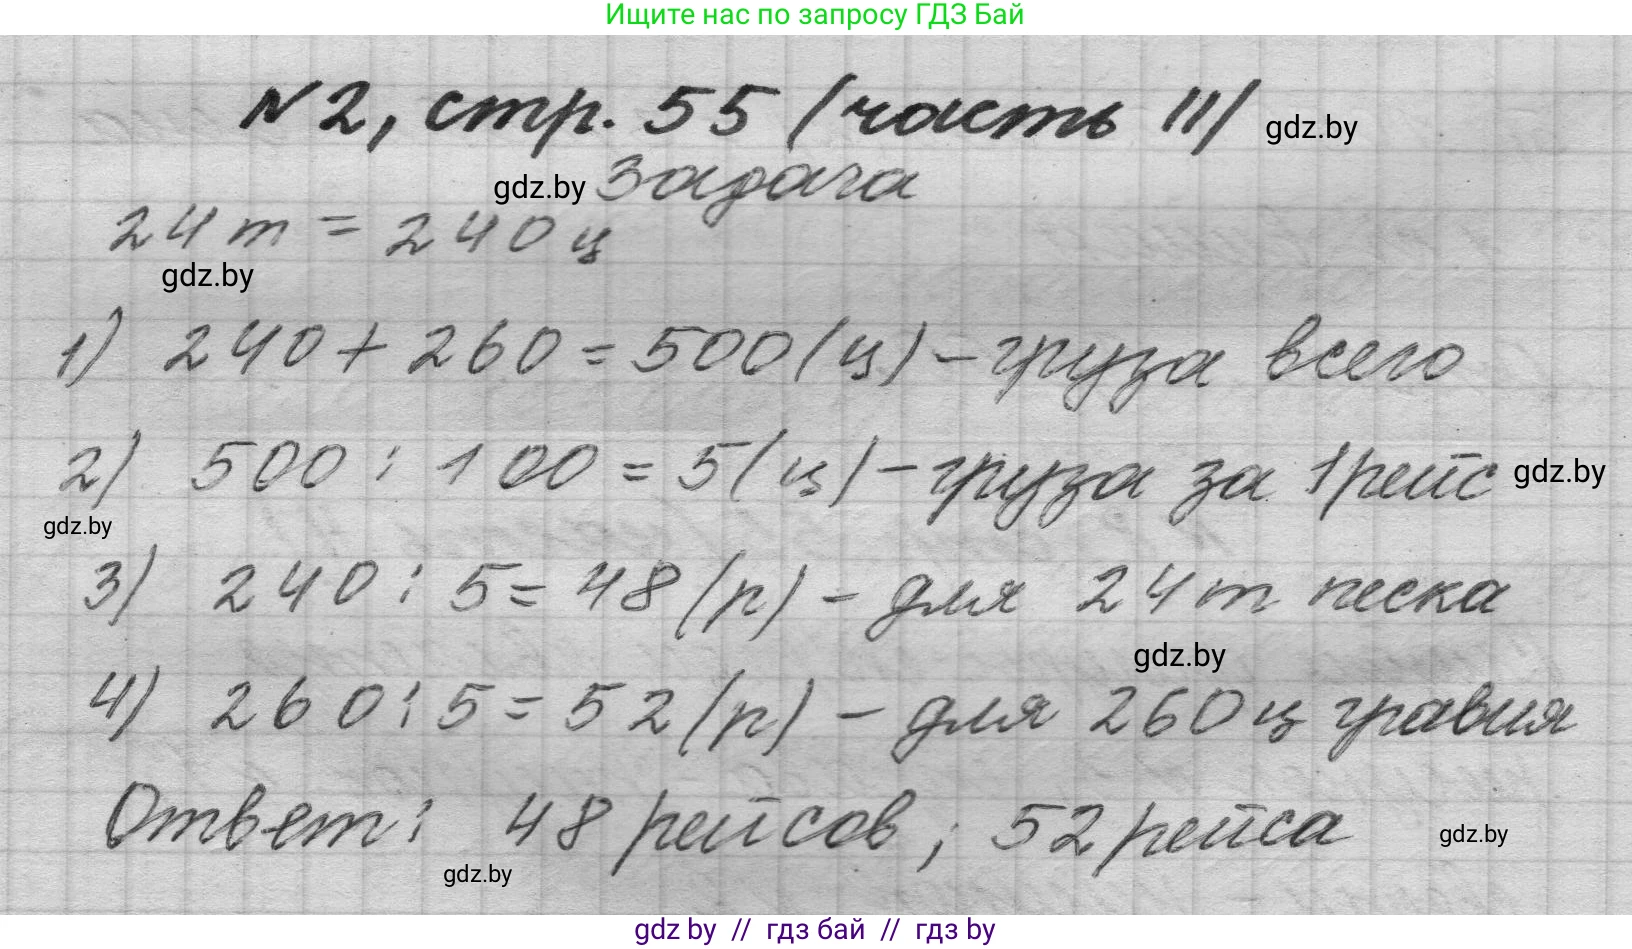 Ищите нас по запросу ГДЗ Бай
N2, стр. 55 (часть II) gdz.by
gdz.by Задача
24 т = 240 ц
gdz.by
1) 240 + 260 = 500 (ц) - груза всего
2) 500 : 100 = 5 (ц) - груза за 1 рейс gdz.by
gdz.by
3) 240 : 5 = 48 (р) - для 24 т песка
gdz.by
4) 260 : 5 = 52 (р) - для 260 ц гравия
Ответ: 48 рейсов; 52 рейса gdz.by
gdz.by
gdz by // гдз бай // гдз by